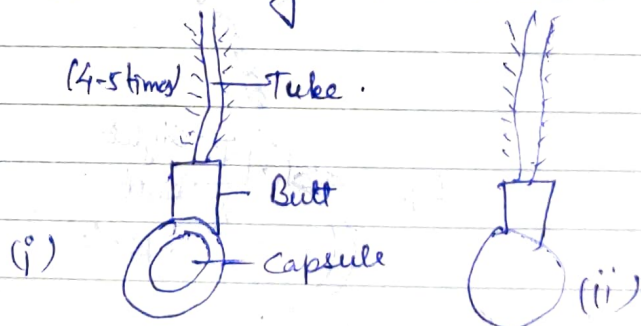 (4-5 times) Tube .
Butt
(i) Capsule
(ii)